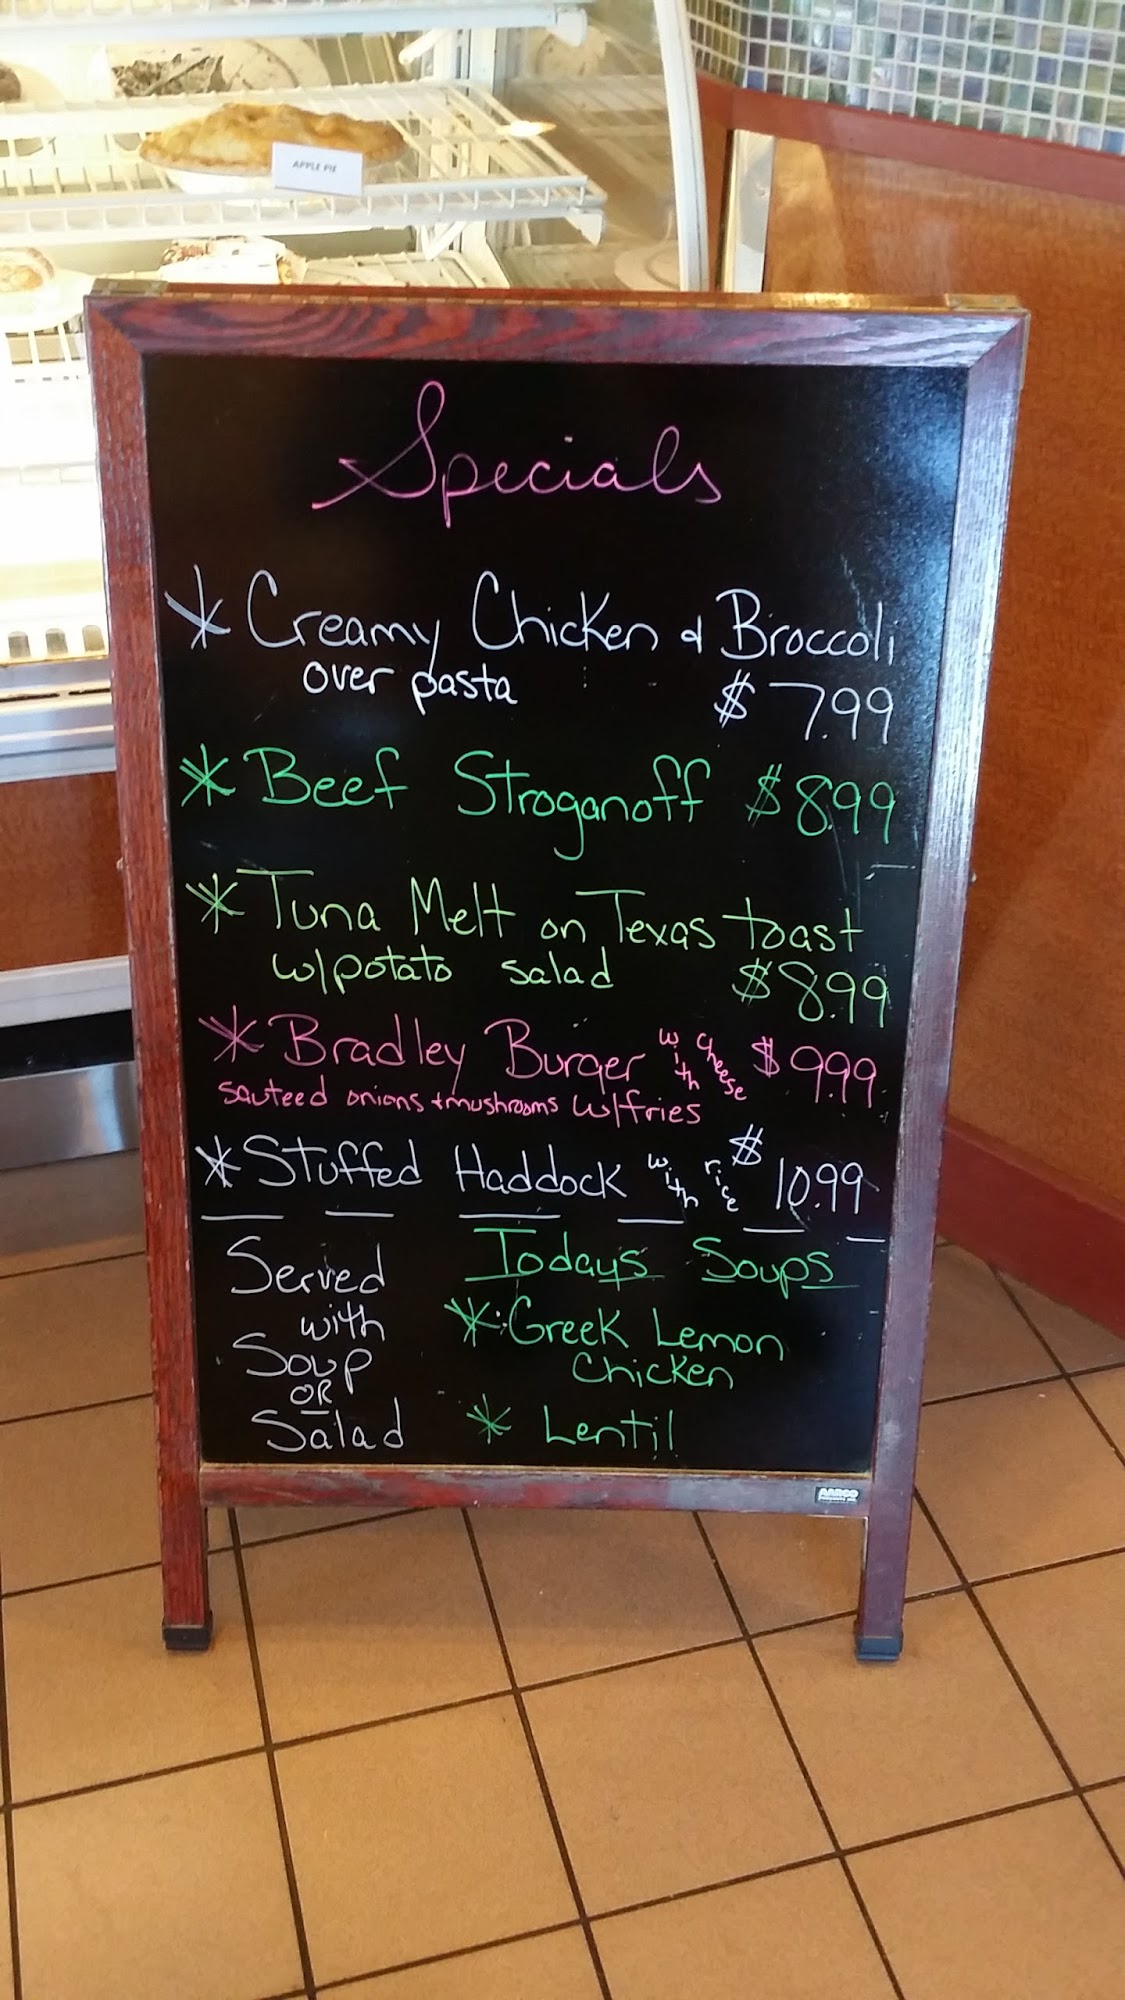 APPLE PIE
Specials
* Creamy Chicken & Broccoli
over pasta $7.99
* Beef Stroganoff $8.99
* Tuna Melt on Texas toast
w/potato salad $8.99
* Bradley Burger with cheese $9.99
sauteed onions + mushrooms w/fries
* Stuffed Haddock with rice $10.99
Served
with
Soup
OR
Salad
Todays Soups
* Greek Lemon
Chicken
* Lentil
AARCO